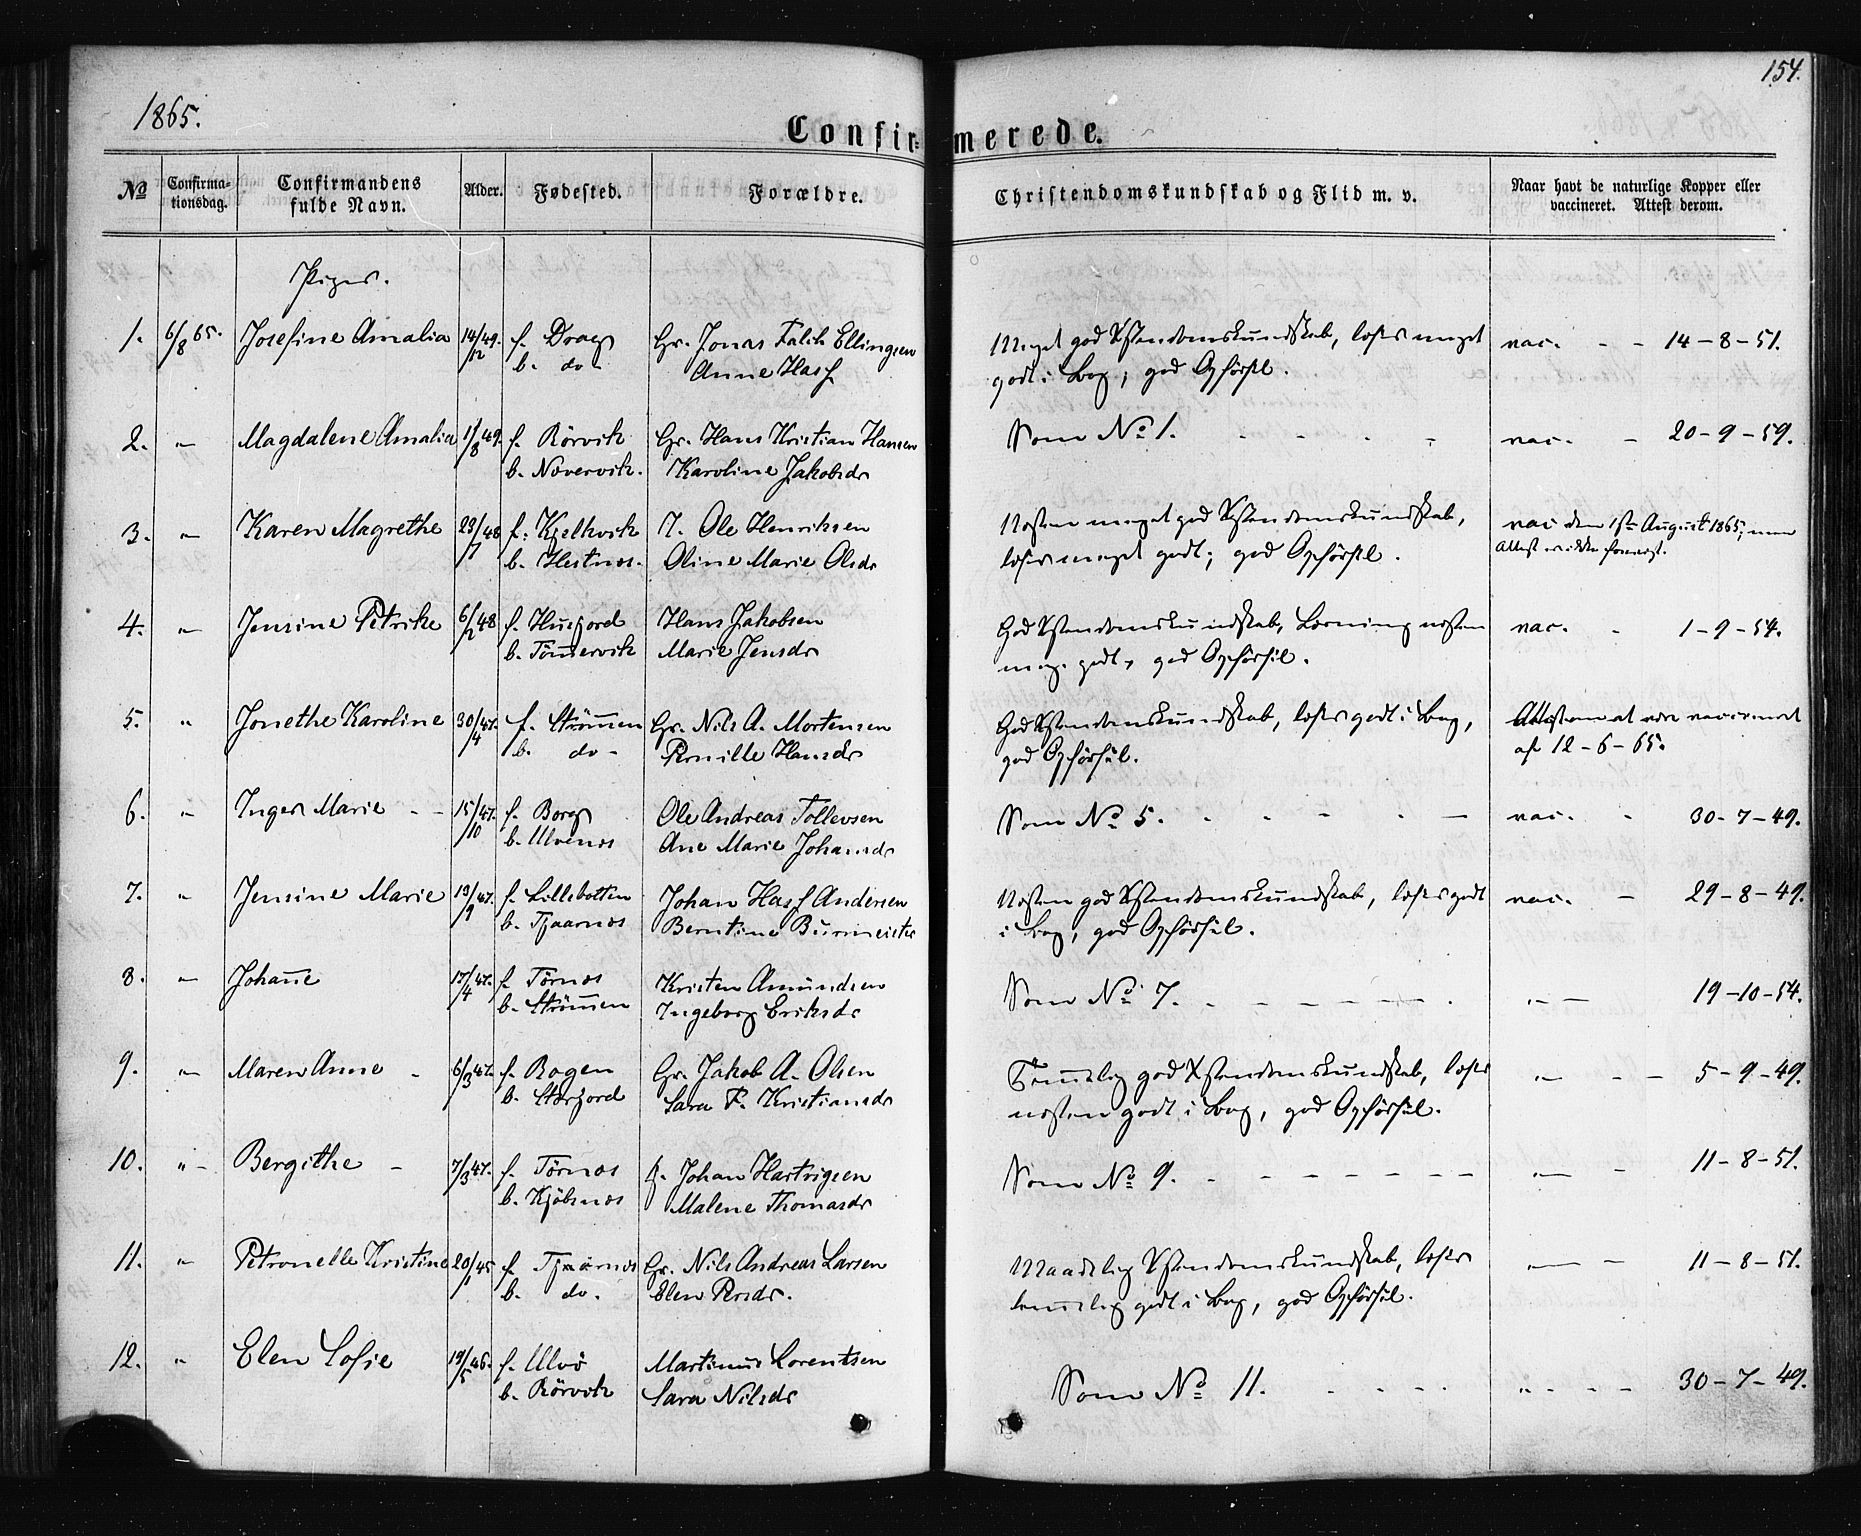 1865.
154.
Confirmerede.
No
Confirma-
tionsdag.
Confirmandens
fulde Navn.
Alder.
Fødested.
Forældre.
Christendomskundskab og Flid m. v.
Naar havt de naturlige Kopper eller
vaccineret. Attest derom.
Piger.
1. 6/8 65. Josefine Amalia 14/12 49. f. Drag Gr. Jonas Falch Ellingsen Meget god Xstendomskundskab, læser meget vac. - - 14-8-51.
b. do- Anne Hass godt i Bog, god Opførsel.
2. - Magdalene Amalia 1/8 49. f. Rørvik Gr. Hans Kristian Hansen Som No 1. - - - - vac. - 20-9-59.
b. Nævervik. Karoline Jakobsdr
3. - Karen Magrethe 23/7 48 f. Kjelkvik I. Ole Henriksen Næsten meget god Xstendomskundskab, vac den 1ste August 1865, men
b. Hestnæs. Oline Marie Olsdr læser meget godt; god Opførsel. Attest er ikke forevist.
4. - Jensine Petrike 6/2 48 f. Husfjord Hans Jakobsen God Xstendomskundskab, Læsning næsten vac. - 1-9-54.
b. Tömmervik Marie Jensdr meg. godt, god Opførsel.
5. " Jonethe Karoline 30/4 47. f. Strömmen Gr. Nils A. Mortensen God Xstendomskundskab, læser godt i Bog, Attest om at være vaccineret
b. do- Pernille Hansdr god Opførsel. af 12-6-65.
6. " Inger Marie - - 15/10 47. f. Borg Ole Andreas Tollevsen Som No 5. - - - - - vac. - 30-7-49.
b. Ulvenæs Ane Marie Johansdr
7. " Jensine Marie 13/9 47. f. Lillebotten Johan Hass Andersen Næsten god Xstendomskundskab, læser godt vac. - 29-8-49.
b. Tjaarnæs Berntine Burmeister i Bog, god Opførsel.
8. - Johanne 17/4 47. f. Törnæs Kristen Amundsen Som No 7. - - - - - - - " - 19-10-54.
b. Strömmen Ingeborg Eriksdr
9. - Maren Anne - 6/3 47. f. Bogen Gr. Jakob A. Olsen Temmelig god Xstendomskundskab, læser " - - - 5-9-49.
b. Storfjord Sara P. Kristiansdr næsten godt i Bog, god Opførsel.
10. " - Bergithe - 7/3 47. f. Törnæs f. Johan Hartvigsen Som No 9. - - - - - - - " - 11-8-51.
b. Kjöbsnæs Malene Thomasdr
11. " Petronelle Kristine 20/1 45 f. Tjaarnæs Gr. Nils Andreas Larsen Maadelig Xstendomskundskab, læser " - 11-8-51.
b. do. Elen Persdr. temmelig godt i Bog, god Opførsel.
12. " Elen Sofie 19/5 46. f. Ulvö Martinus Lorentsen Som No 11. - - - - " - - - 30-7-49.
b. Rörvik Sara Nilsdr